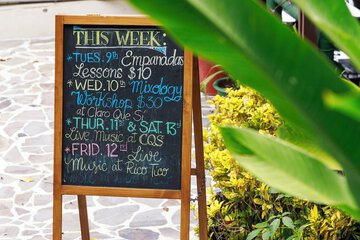 THIS WEEK:
*TUES. 9th Empanadas
Lessons $10
*WED. 10th Mixology
Workshop $30
at Claro Que Si
*THUR. 11th & SAT. 13th
Live Music at CQS
*FRI. 12th Live
Music at Rico Tico